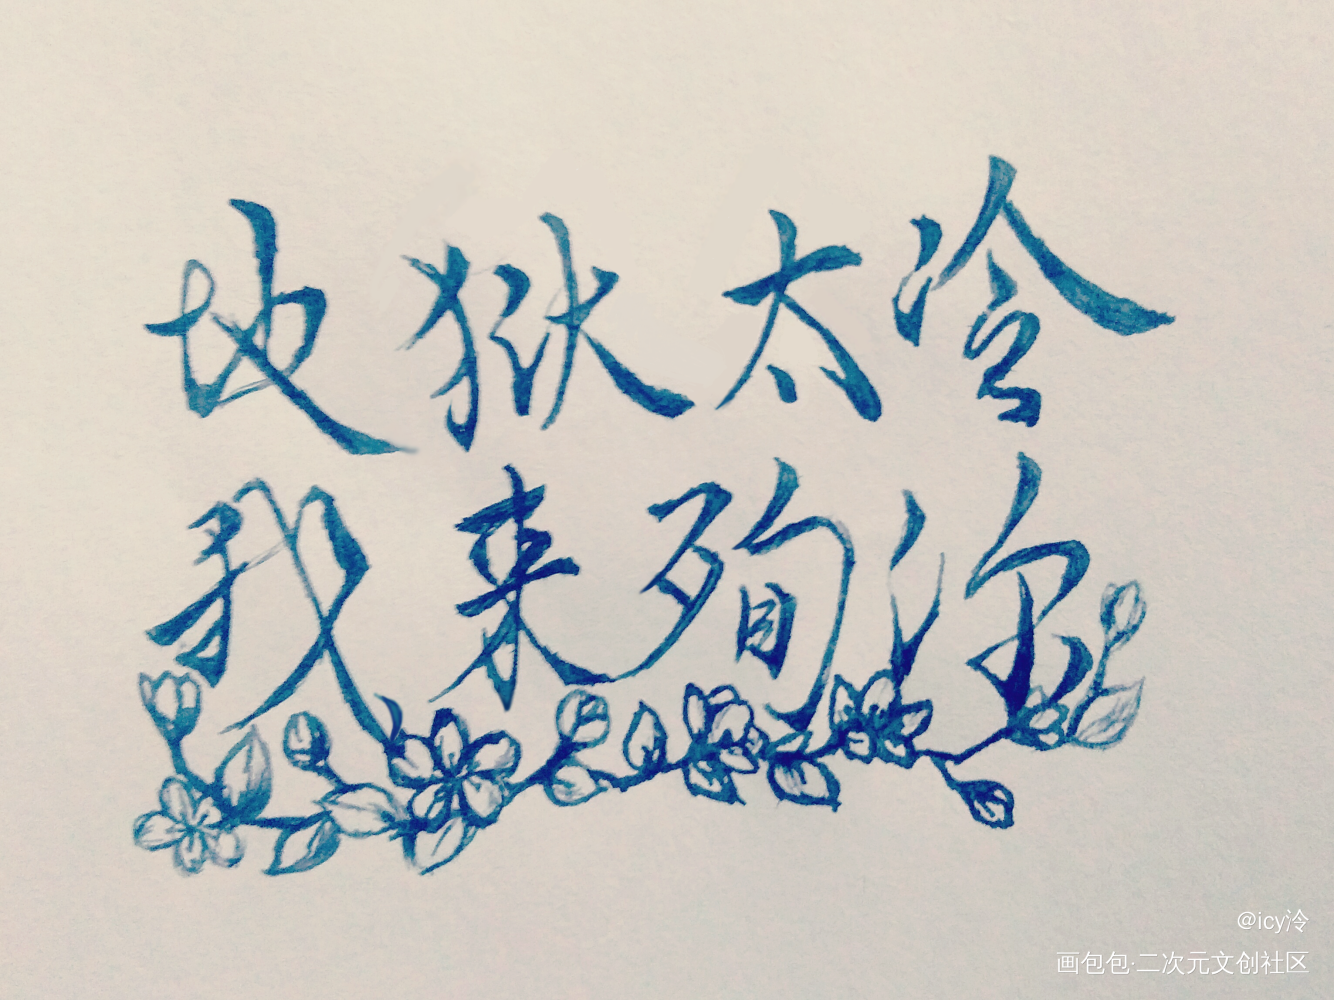 地狱太冷
我来殉你
@icy泠
画包包·二次元文创社区